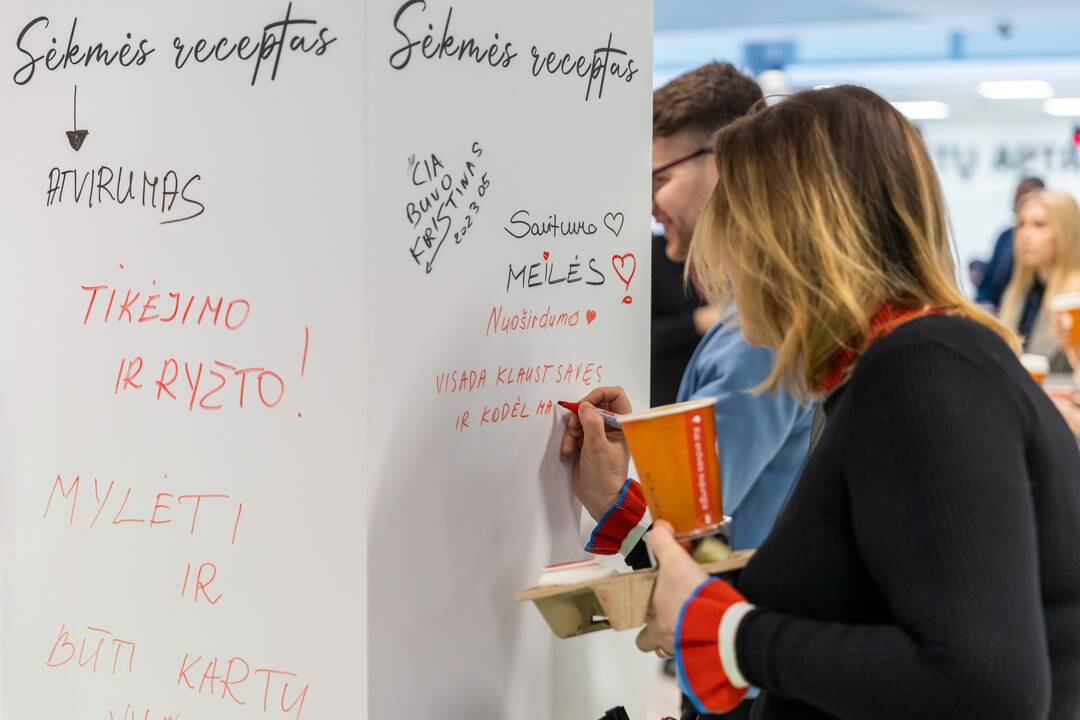 Sėkmės receptas
ATVIRUMAS
TIKĖJIMO
IR RYŽTO!
MYLĖTI
IR
BŪTI KARTU
Sėkmės receptas
ČIA
BUVO
KRISTINAS
2023 05
MEILĖS
Nuoširdumo
VISADA KLAUST SAVĘS
IR KODĖL MA